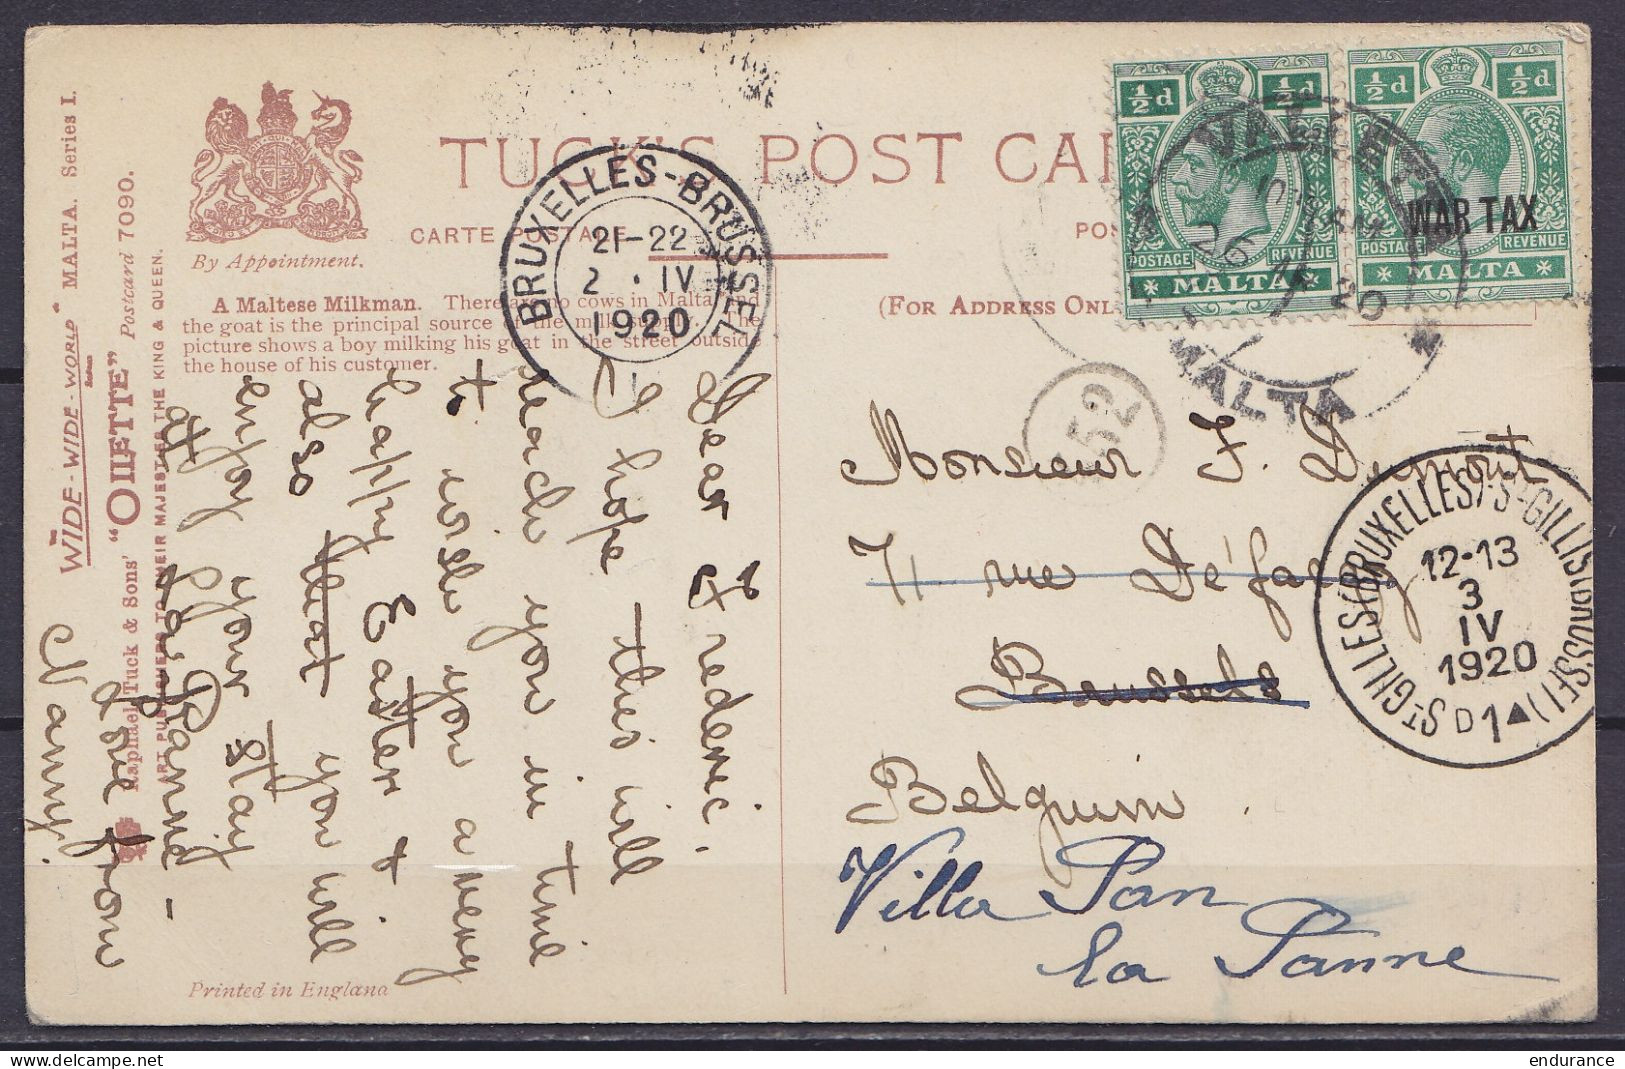 TUCK'S POST CAR
CARTE POSTALE
POS
(FOR ADDRESS ONL
By Appointment.
A Maltese Milkman. There are no cows in Malta and
the goat is the principal source of the milk supply. The
picture shows a boy milking his goat in the street outside
the house of his customer.
WIDE-WIDE-WORLD MALTA. Series I.
Raphael Tuck & Sons' "OILETTE" Postcard 7090.
ART PUBLISHERS TO THEIR MAJESTIES THE KING & QUEEN.
Printed in England
BRUXELLES-BRUSSEL
21-22
2 · IV
1920
½d ½d
POSTAGE REVENUE
MALTA
½d ½d
WAR TAX
POSTAGE REVENUE
MALTA
VALLETTA
26
20
MALTA
52
ST GILLES (BRUXELLES) · ST GILLIS (BRUSSEL)
12-13
3
IV
1920
D 1
Dear Frederic.
I hope this will
reach you in time
to wish you a very
happy Easter &
also that you will
enjoy your stay
at La Panne -
Love from
Nanny.
Monsieur F. Dumont
71 rue Défacqz
Brussels
Belgium.
Villa Pan
La Panne
endurance